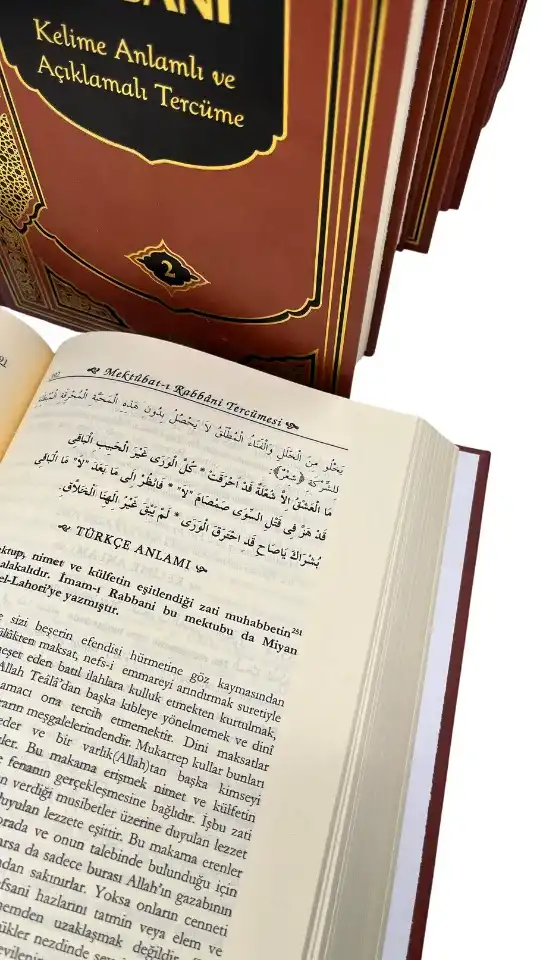 BBANİ
Kelime Anlamlı ve
Açıklamalı Tercüme
2
Mektûbat-ı Rabbâni Tercümesi
يَخْلُو مِنَ الْخَلَلِ وَالْفَنَاءُ الْمُطْلَقُ لاَ يَحْصُلُ بِدُونِ هَذِهِ الْمَحَبَّةِ الْمُحْرِقَةِ
لِلشِّرْكَةِ ﴿شعْرٌ﴾:
مَا الْعِشْقُ اِلاَّ شُعْلَةٌ قَدْ اَحْرَقَتْ * كُلَّ الْوَرَى غَيْرَ الْحَبِيبِ الْبَاقِى
قَدْ هَزَّ فِى قَتْلِ السِّوَى صَمْصَامَ "لاَ" * فَانْظُرْ اِلَى مَا بَعْدَ "لاَ" مَا الْبَاقِى
بُشْرَاكَ يَاصَاحِ قَدِ احْتَرَقَ الْوَرَى * لَمْ يَبْقَ غَيْرُ اِلَهِنَا الْخَلاَّقِ.
TÜRKÇE ANLAMI
nimet ve külfetin eşitlendiği zati muhabbetin
alakalıdır. İmam-ı Rabbani bu mektubu da Miyan
el-Lahori'ye yazmıştır.
sizi beşerin efendisi hürmetine göz kaymasından
maksat, nefs-i emmareyi arındırmak suretiyle
eden batıl ilahlara kulluk etmekten kurtulmak,
Allah Teâlâ'dan başka kıbleye yönelmemek ve dinî
amacı ona tercih etmemektir. Dini maksatlar
meşgalelerindendir. Mukarrep kullar bunları
eder ve bir varlık(Allah)tan başka kimseyi
Bu makama erişmek nimet ve külfetin
fenanın gerçekleşmesine bağlıdır. İşbu zati
verdiği musibetler üzerine duyulan lezzet
duyulan lezzete eşittir. Bu makama erenler
orada ve onun talebinde bulunduğu için
da sadece burası Allah'ın gazabının
sakınırlar. Yoksa onların cenneti
hazlarını tatmin veya elem ve
uzaklaşmak değildir.
nezdinde